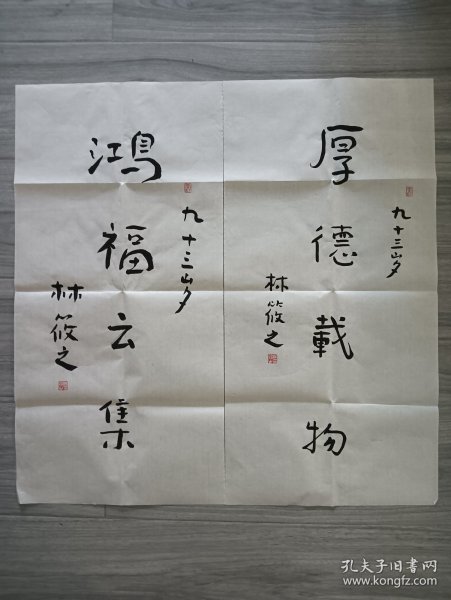 厚德载物
九十三岁
林筱之
鸿福云集
九十三岁
林筱之
孔夫子旧书网
www.kongfz.com